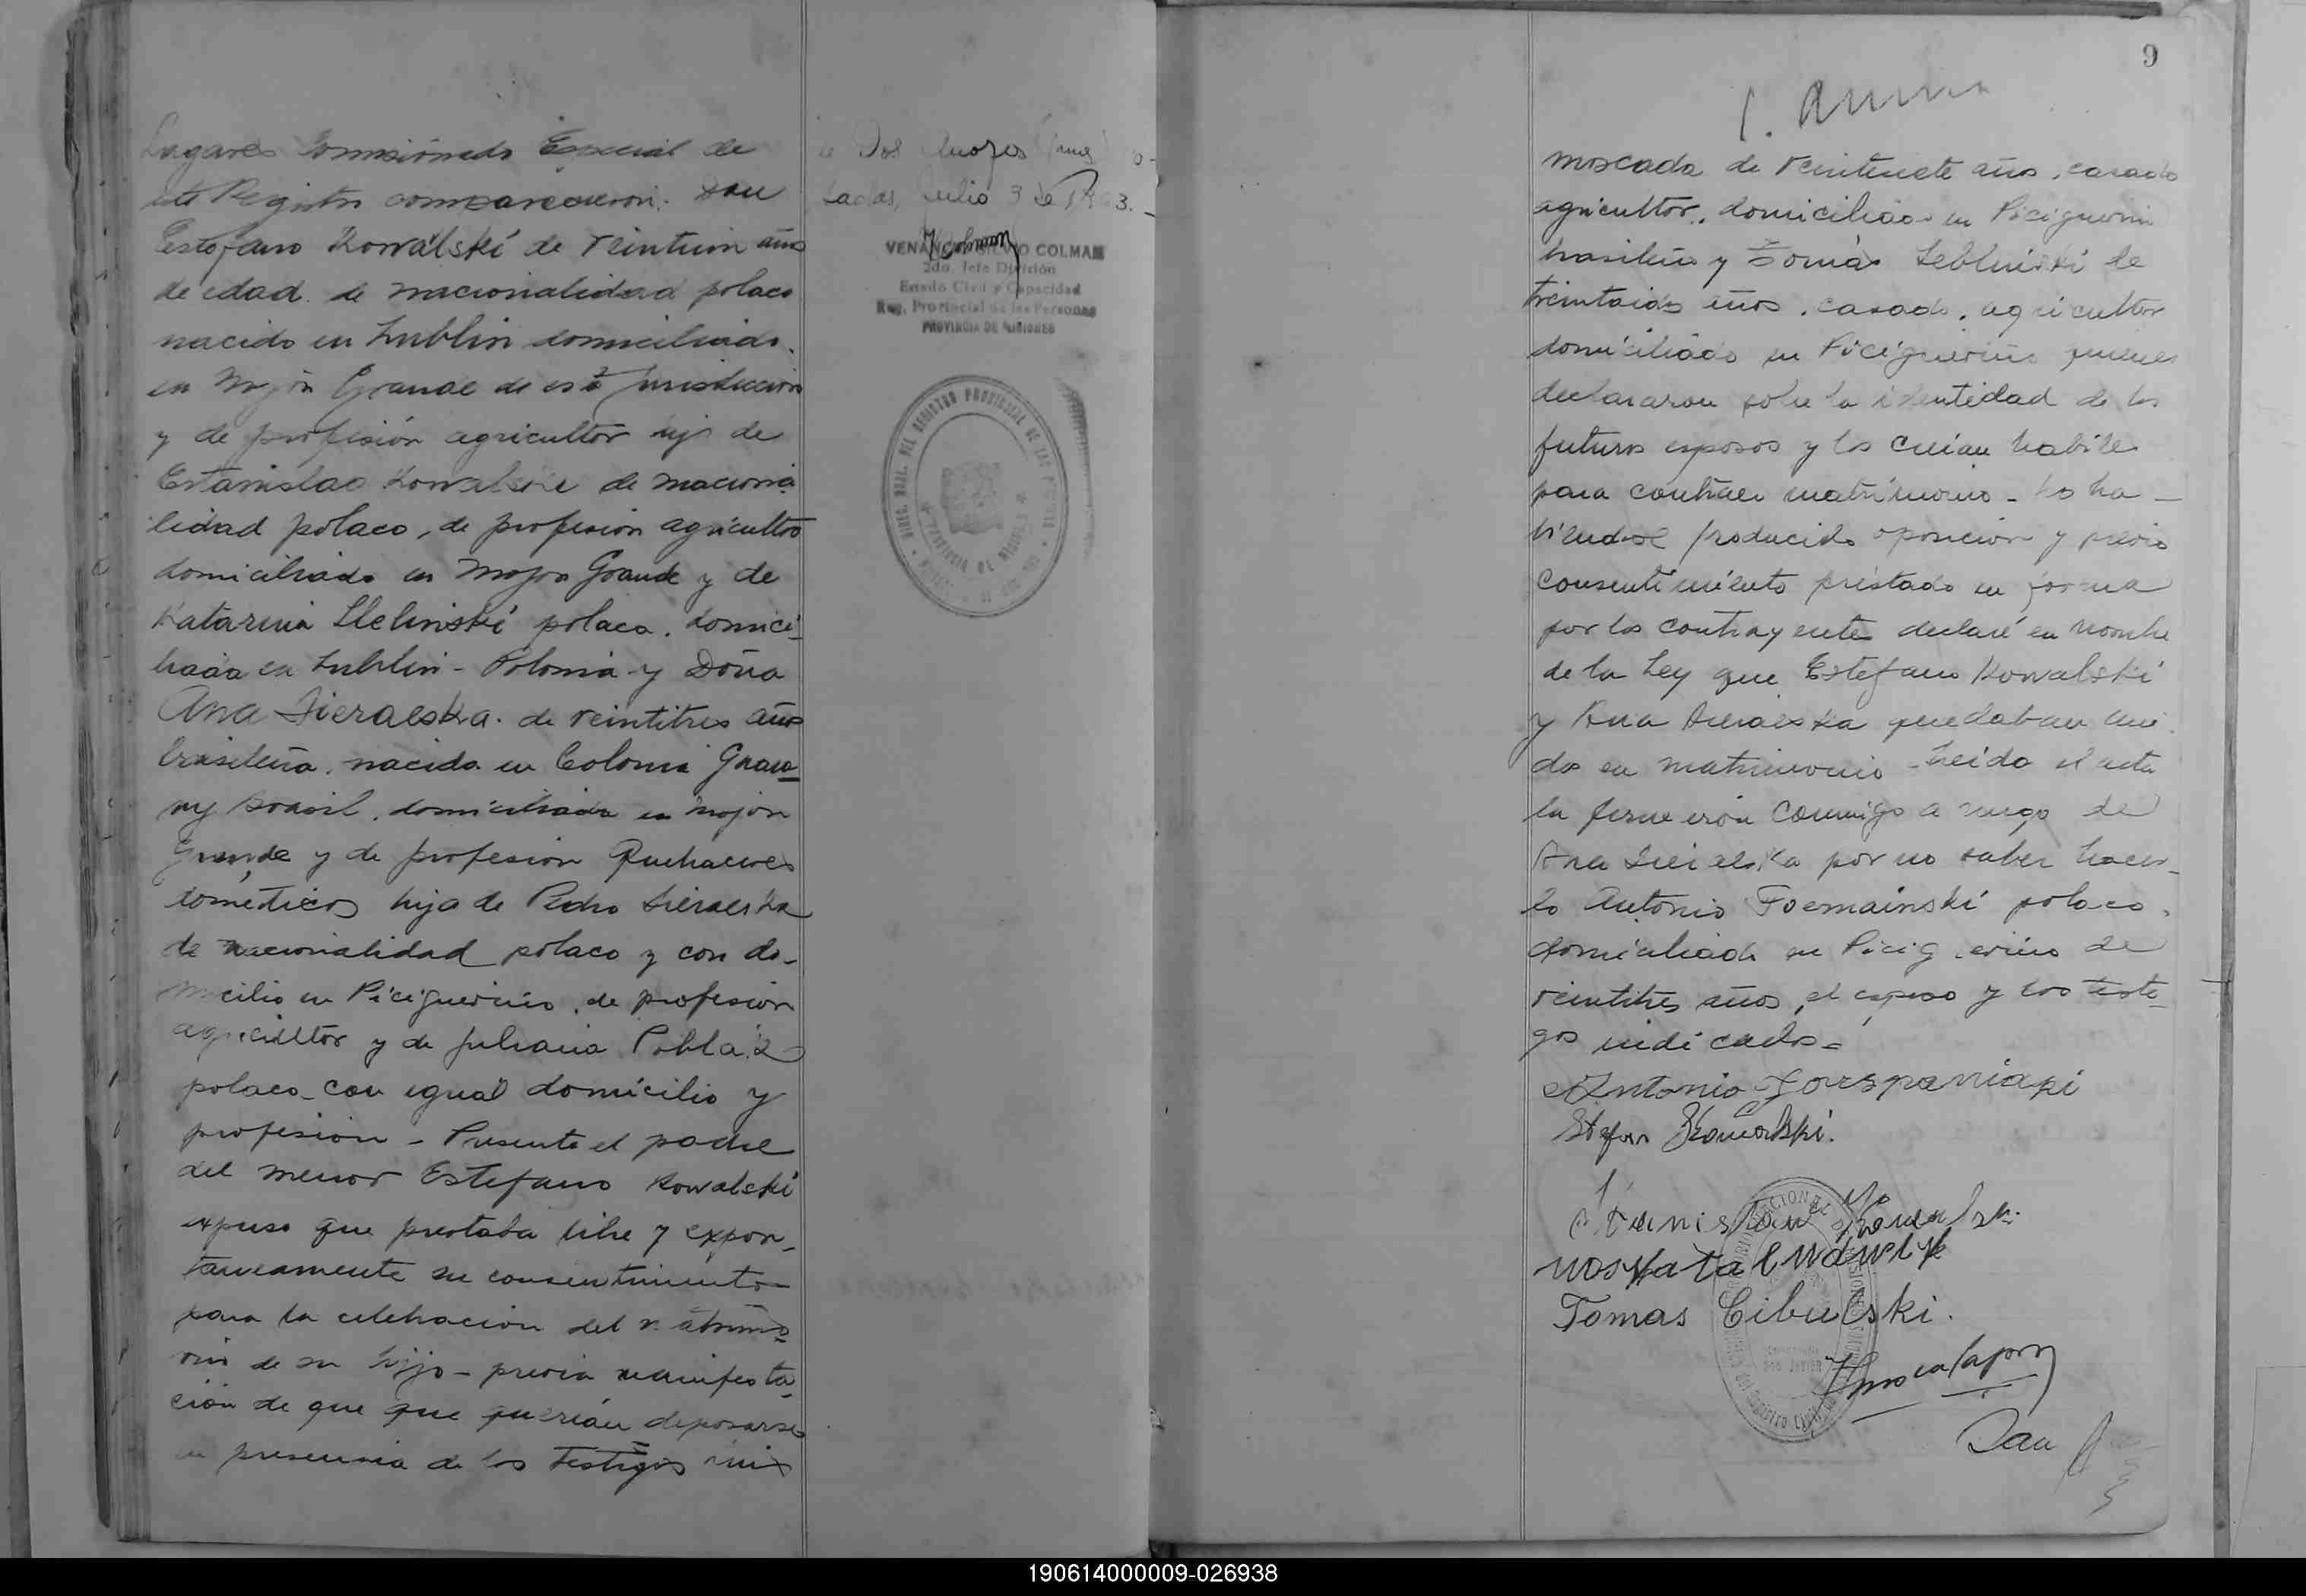 Lagares Comisionado Especial de
este Registro comparecieron: Don
Estefano Kowalski de veintiun años
de edad de nacionalidad polaco
nacido en Lublin domiciliado
en Mojón Grande de esta jurisdiccion
y de profesión agricultor hijo de
Estanislao Kowalski de naciona
lidad polaco, de profesion agricultor
domiciliado en Mojon Grande y de
Katarina polaca. domici-
liada en Lublin - Polonia y Doña
Ana Sieraeska de veintitres años
brasileña. nacida en Colonia Guara
ny Brasil, domiciliada en Mojon
Grande y de profesion Quehaceres
dométicos hija de Pedro Sieraeska
de nacionalidad polaco y con do-
micilio en Piciguerino, de profesion
agricultor y de Juliana
polaco con igual domicilio y
profesion - Presente el padre
del menor Estefano Kowalski
expuso que prestaba libre y expon-
taneamente su consentimiento
para la celebracion del matrimo
nio de su hijo - previa manifesta
ción de que que querian deposarse
en presencia de los testigos
de Dos
Julio 3 de 1963.-
VENANCIO SILVIO COLMAN
2do. Jefe División
Estado Civil y Capacidad
Reg. Provincial de las Personas
PROVINCIA DE MISIONES
DIREC. GRAL. DEL REGISTRO PROVINCIAL DE LAS PERSONAS
PROVINCIA DE MISIONES
9
moscada de veintisiete años, casado
agricultor, domiciliado en
brasileño y Tomás de
treintaidos años, casado, agricultor
domiciliado en Piciguerino quienes
declararon sobre la identidad de los
futuros esposos y los creian habiles
para contraer matrimonio - No ha-
biendose producido oposicion y previo
consentimiento prestado en forma
por los contrayentes declaré en nombre
de la Ley que Estefano Kowalski
y Ana Sieraeska quedaban uni
dos en matrimonio - Leido el acta
la firmaron conmigo a ruego de
Ana por no saber hacer-
lo Antonio polaco,
domiciliado en Piciguerino de
veintitres años, el esposo y los testi-
gos indicados=
Antonio
Stefan Kowalski.
Stanislau Kowalski
Tomas Cibulski.
190614000009-026938